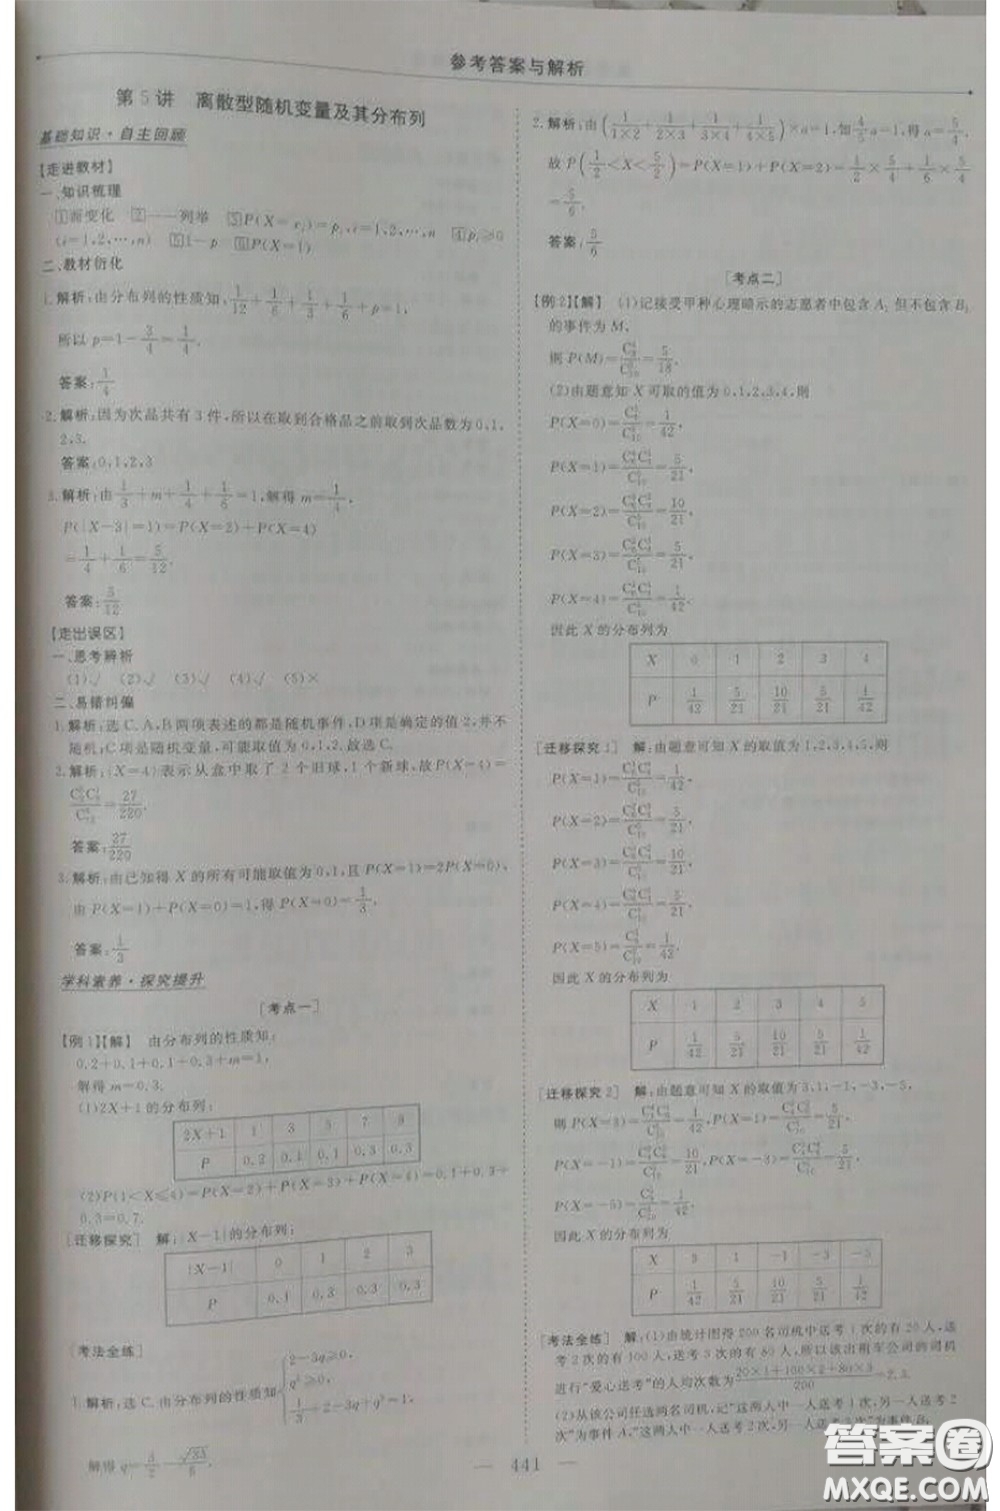 参考答案与解析
第5讲　离散型随机变量及其分布列
基础知识·自主回顾
【走进教材】
一、知识梳理
1 而变化　2 一一列举　3 P(X=x_i)=p_i,i=1,2,…,n　4 p_i≥0
(i=1,2,…,n)　5 1-p　6 P(X=1)
二、教材衍化
1.解析:由分布列的性质知,1/12+1/6+1/3+1/6=3/4,
所以 p=1-3/4=1/4.
答案:1/4
2.解析:因为次品共有3件,所以在取到合格品之前取到次品数为0,1,
2,3.
答案:0,1,2,3
3.解析:由1/3+m+1/4+1/6=1,解得m=1/4,
P(|X-3|=1)=P(X=2)+P(X=4)
=1/4+1/6=5/12.
答案:5/12
【走出误区】
一、思考辨析
(1)√　(2)√　(3)√　(4)√　(5)×
二、易错纠偏
1.解析:选C.A,B两项表述的都是随机事件,D项是确定的值2,并不
随机;C项是随机变量,可能取值为0,1,2.故选C.
2.解析:{X=4}表示从盒中取了2个旧球,1个新球,故P(X=4)=
=27/220.
答案:27/220
3.解析:由已知得X的所有可能取值为0,1,且P(X=1)=2P(X=0),
由P(X=1)+P(X=0)=1,得P(X=0)=1/3.
答案:1/3
学科素养·探究提升
[考点一]
【例1】【解】　由分布列的性质知:
0.2+0.1+0.1+0.3+m=1,
解得m=0.3.
(1)2X+1的分布列:
2X+1　1　3　5　7　9
P　0.2　0.1　0.1　0.3　0.3
(2)P(1<X≤4)=P(X=2)+P(X=3)+P(X=4)=0.1+0.3+
0.3=0.7.
[迁移探究]　解:|X-1|的分布列:
|X-1|　0　1　2　3
P　0.1　0.3　0.3　0.3
[考法全练]
1.解析:选C.由分布列的性质知{2-3q≥0, q²≥0, 1/3+2-3q+q²=1,
解得q=3/2-√33/6.
2.解析:由(1/(1×2)+1/(2×3)+1/(3×4)+1/(4×5))×a=1,知4/5a=1,得a=5/4.
故P(1/2<X<5/2)=P(X=1)+P(X=2)=1/2×5/4+1/6×5/4
=5/6.
答案:5/6
[考点二]
【例2】【解】　(1)记接受甲种心理暗示的志愿者中包含A₁但不包含B₁
的事件为M,
则P(M)=C₈⁴/C₁₀⁵=5/18.
(2)由题意知X可取的值为0,1,2,3,4,则
P(X=0)=C₆⁵/C₁₀⁵=1/42,
P(X=1)=C₆⁴C₄¹/C₁₀⁵=5/21,
P(X=2)=C₆³C₄²/C₁₀⁵=10/21,
P(X=3)=C₆²C₄³/C₁₀⁵=5/21,
P(X=4)=C₆¹C₄⁴/C₁₀⁵=1/42.
因此X的分布列为
X　0　1　2　3　4
P　1/42　5/21　10/21　5/21　1/42
[迁移探究1]　解:由题意可知X的取值为1,2,3,4,5,则
P(X=1)=C₆¹C₄⁴/C₁₀⁵=1/42,
P(X=2)=C₆²C₄³/C₁₀⁵=5/21,
P(X=3)=C₆³C₄²/C₁₀⁵=10/21,
P(X=4)=C₆⁴C₄¹/C₁₀⁵=5/21,
P(X=5)=C₆⁵/C₁₀⁵=1/42.
因此X的分布列为
X　1　2　3　4　5
P　1/42　5/21　10/21　5/21　1/42
[迁移探究2]　解:由题意可知X的取值为3,1,-1,-3,-5,
则P(X=3)=C₄⁴C₆¹/C₁₀⁵=1/42,P(X=1)=C₄³C₆²/C₁₀⁵=5/21,
P(X=-1)=C₄²C₆³/C₁₀⁵=10/21,P(X=-3)=C₄¹C₆⁴/C₁₀⁵=5/21,
P(X=-5)=C₆⁵/C₁₀⁵=1/42.
因此X的分布列为
X　3　1　-1　-3　-5
P　1/42　5/21　10/21　5/21　1/42
[考法全练]　解:(1)由统计图得200名司机中送考1次的有20人,送
考2次的有100人,送考3次的有80人,所以该出租车公司的司机
进行“爱心送考”的人均次数为(20×1+100×2+80×3)/200=2.3.
(2)从该公司任选两名司机,记“这两人中一人送考1次,另一人送考2
次”为事件A,“这两人中一人送考2次,另一人送考3次”为事件B,
441
答案圈
MXQE.COM